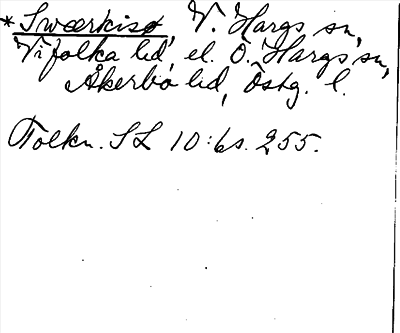 *Swærkisø, V. Hargs sn,
Vifolka hd, el. Ö. Hargs sn,
Åkerbo hd, Östg. l.
Tolkn. SL 10:6 s. 255.